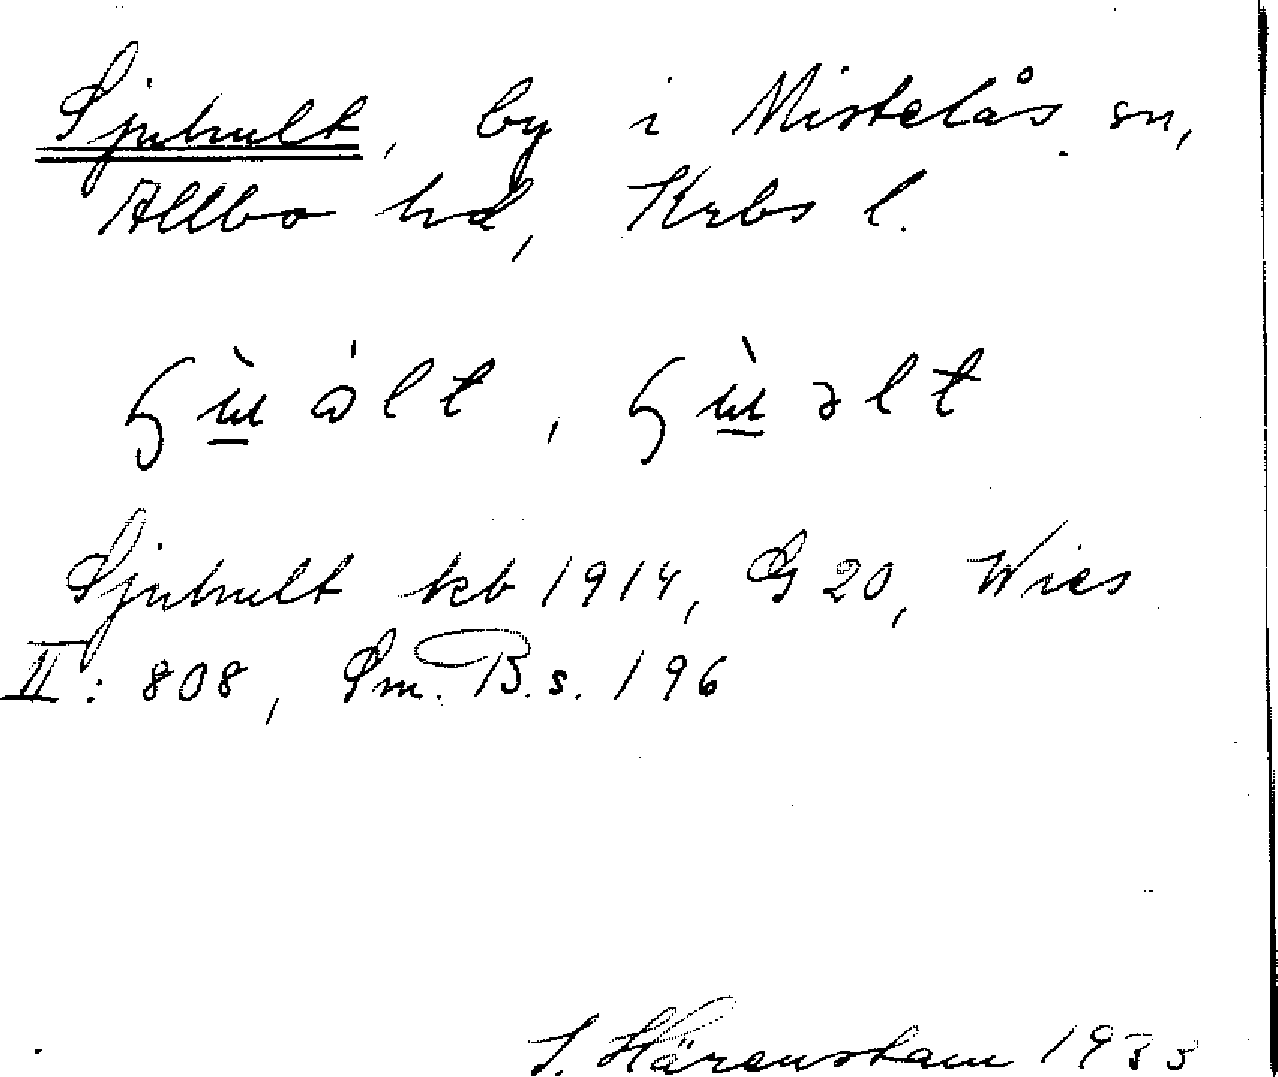 Sjuhult, by i Mistelås sn,
Allbo hd, Krbs l.
Sjuhult kb 1914, G 20, Wies
II: 808, Sm. B. s. 196
Härenstam 1933